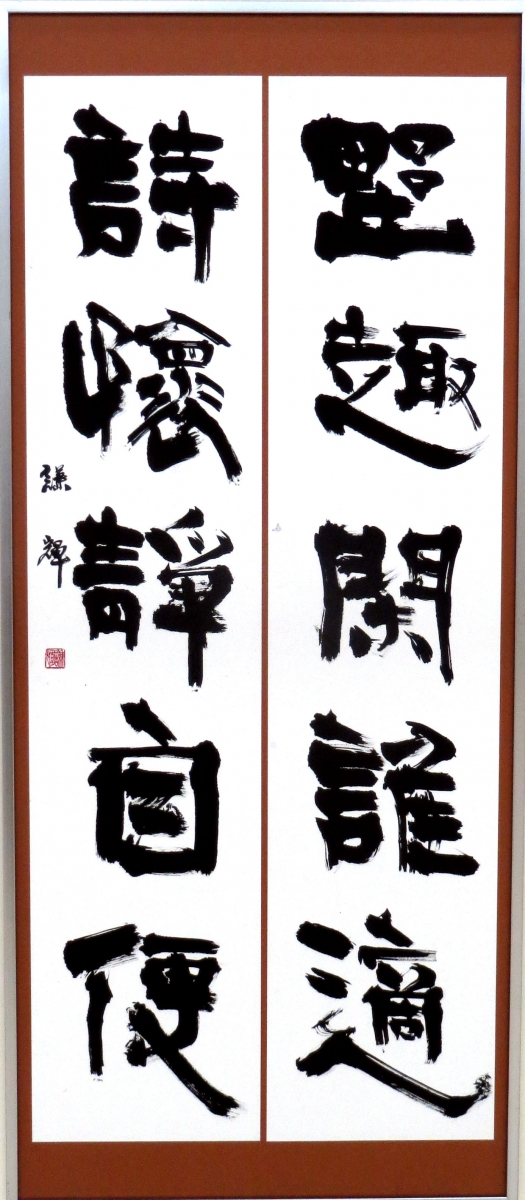 野趣閑誰適
詩懷靜自便
謙輝